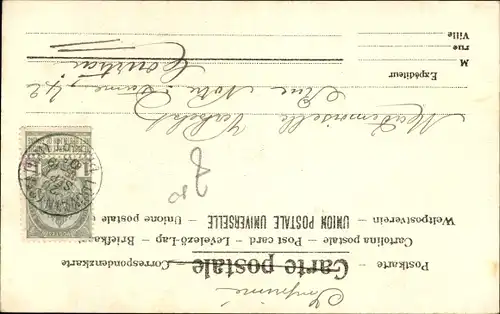 Imprimé
Carte postale
Postkarte — Correspondenzkarte
Cartolina postale — Post card — Levelező-Lap — Briefkaart
UNION POSTALE UNIVERSELLE
Weltpostverein — Unione postale
Mademoiselle
Rue Notre-Dame, 42
Courtrai
Expéditeur
M
rue
Ville